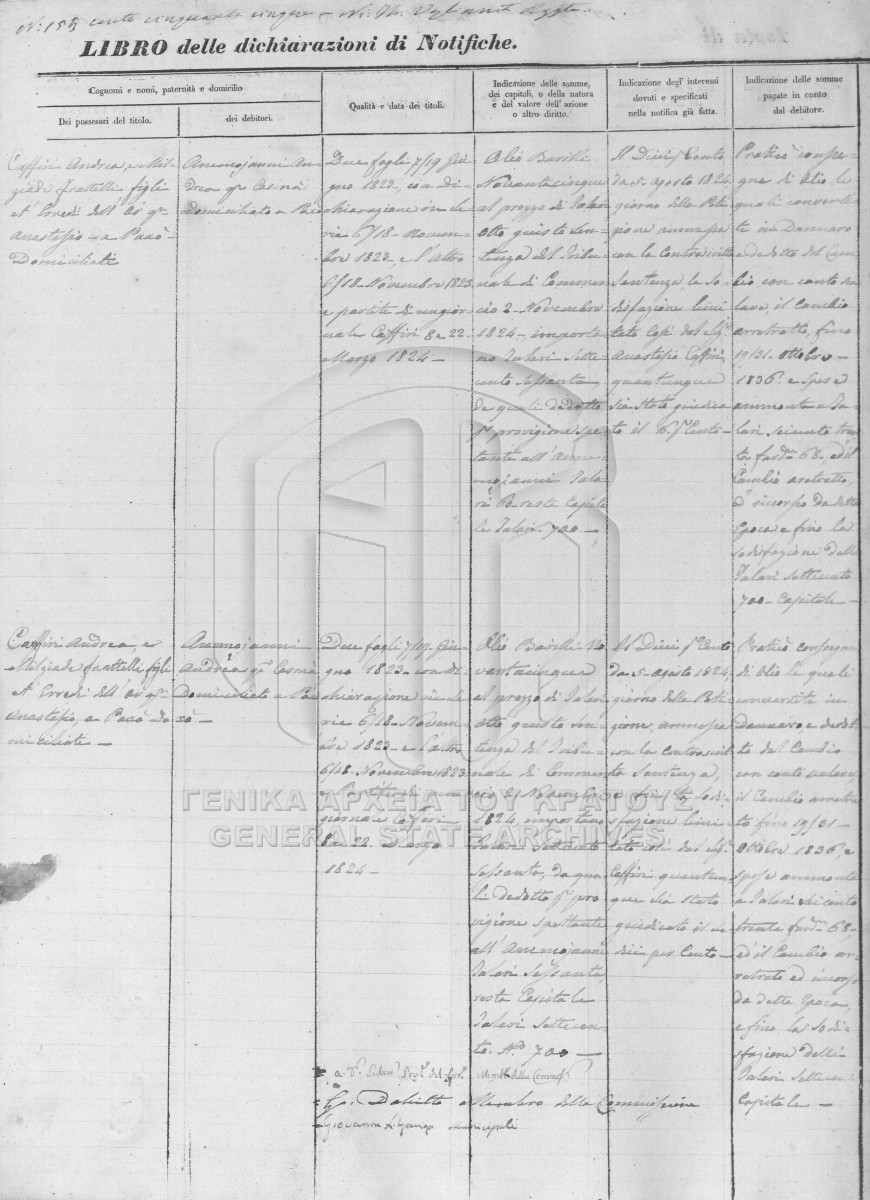 N. 155 cento cinquanta cinque
LIBRO delle dichiarazioni di Notifiche.
Cognomi e nomi, paternità e domicilio
Dei possesori del titolo.
dei debitori.
Qualità e data dei titoli.
Indicazione delle somme,
dei capitali, o della natura
e del valore dell' azione
o altro diritto.
Indicazione degl' interessi
dovuti e specificati
nella notifica già fatta.
Indicazione delle somme
pagate in conto
dal debitore.
Caffiri Andrea, e Mil-
ziade frattelli figli
et Erredi dell'
Anastasio a Paxò
Domiciliati
Anemojanni An-
drea qm Cosmà
Domiciliato a Paxò
Due fogli 7/19 Giu-
gno 1823, con Di-
chiarazione in se-
rie 6/18 Novem-
bre 1823, e l'altro
6/18 Novembre 1823
e partite di un gior-
nale Caffiri 8 e 22
Marzo 1824
Olio Barille
Novantacinque
al prezzo di Talari
otto giusto Sen-
tenza del Tribu-
nale di Commer-
cio 2 Novembre
1824, importa-
no Talari Sette
cento Sessanta
de quali dedotto
pr provigione spe-
tante all' Anne-
mojanni Tala-
ri 60 resta Capita-
le Talari 700
Il Dieci pr Cento
da 5 agosto 1824
giorno della Peti-
zione ammessa
con la Controscritta
Sentenza, la So-
disfazione limi-
tata Così dal Sigr
Anastasio Caffiri,
quantunque
sia stato giudica-
to il pr Cento
Praticò conse-
gne di Olio le
quali convertit-
te in Dannaro
e dedotto del Cam-
bio con conto sca-
lare, il Cambio
arretratto, fino
19/31 Ottobre
1836 e Spese
ammonta a Ta-
lari seicento tren-
ta fardni 68, ed il
Cambio aretratto
ed incorso da detta
Epoca e fino la
sodisfazione delli
Talari settecento
700 Capitale
Caffiri Andrea, e
Milziade frattelli figli
et Erredi dell'
Anastasio, a Paxò Do-
miciliati
Anemojanni
Andrea qm Cosmà
Domiciliato a Pa-
xò
Due fogli 7/19 Giu-
gno 1823 con di-
chiarazione in se-
rie 6/18 Novem-
bre 1823 e l'altro
6/18 Novembre 1823
e Partite di un
giornale Caffiri
8 e 22 Marzo
1824
Olio Barille No-
vantacinque
al prezzo di Talari
otto giusto Sen-
tenza del Tribu-
nale di Commer-
cio 2 Novembre
1824, importano
Talari Settecento
Sessanta, da qua-
li dedotto pr pro-
vigione spettante
all' Anemojanni
Talari Sessanta,
resta Capitale
Talari Settecen-
to No 700
Il Dieci pr Cento
da 5 agosto 1824,
giorno della Peti-
zione, ammessa
con la controscrit-
ta Sentenza,
e la sodi-
sfazione limi-
tata così dal Sigr
Caffiri quantun-
que sia stato
giudicato il se-
dici per Cento
Praticò consegne
di Olio le quali
convertite in
dannaro e dedot-
te dal Cambio
con conto scalare
il Cambio arretra-
to fino 19/31
Ottobre 1836, e
spese ammonta
a Talari seicento
trenta fardni 68,
ed il Cambio ar-
retrato ed incorso
da detta Epoca,
e fino la Sodi-
sfazione delli
Talari settecento
Capitale
Membro della Commissione
Giovanni
Municipali
ΓΕΝΙΚΑ ΑΡΧΕΙΑ ΤΟΥ ΚΡΑΤΟΥΣ
GENERAL STATE ARCHIVES